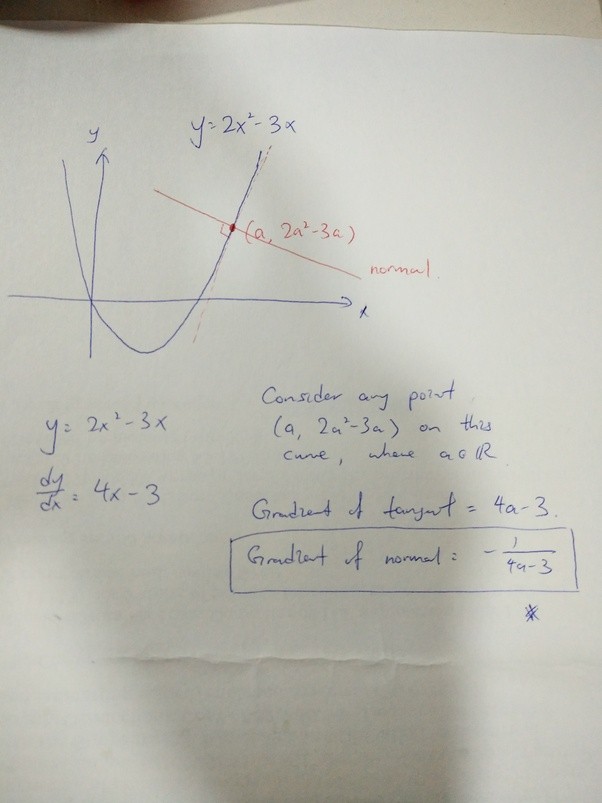 y
y = 2x² - 3x
(a, 2a² - 3a)
normal
x
y = 2x² - 3x
dy/dx = 4x - 3
Consider any point
(a, 2a² - 3a) on this
curve, where a ∈ ℝ
Gradient of tangent = 4a - 3.
Gradient of normal = - 1/(4a - 3)